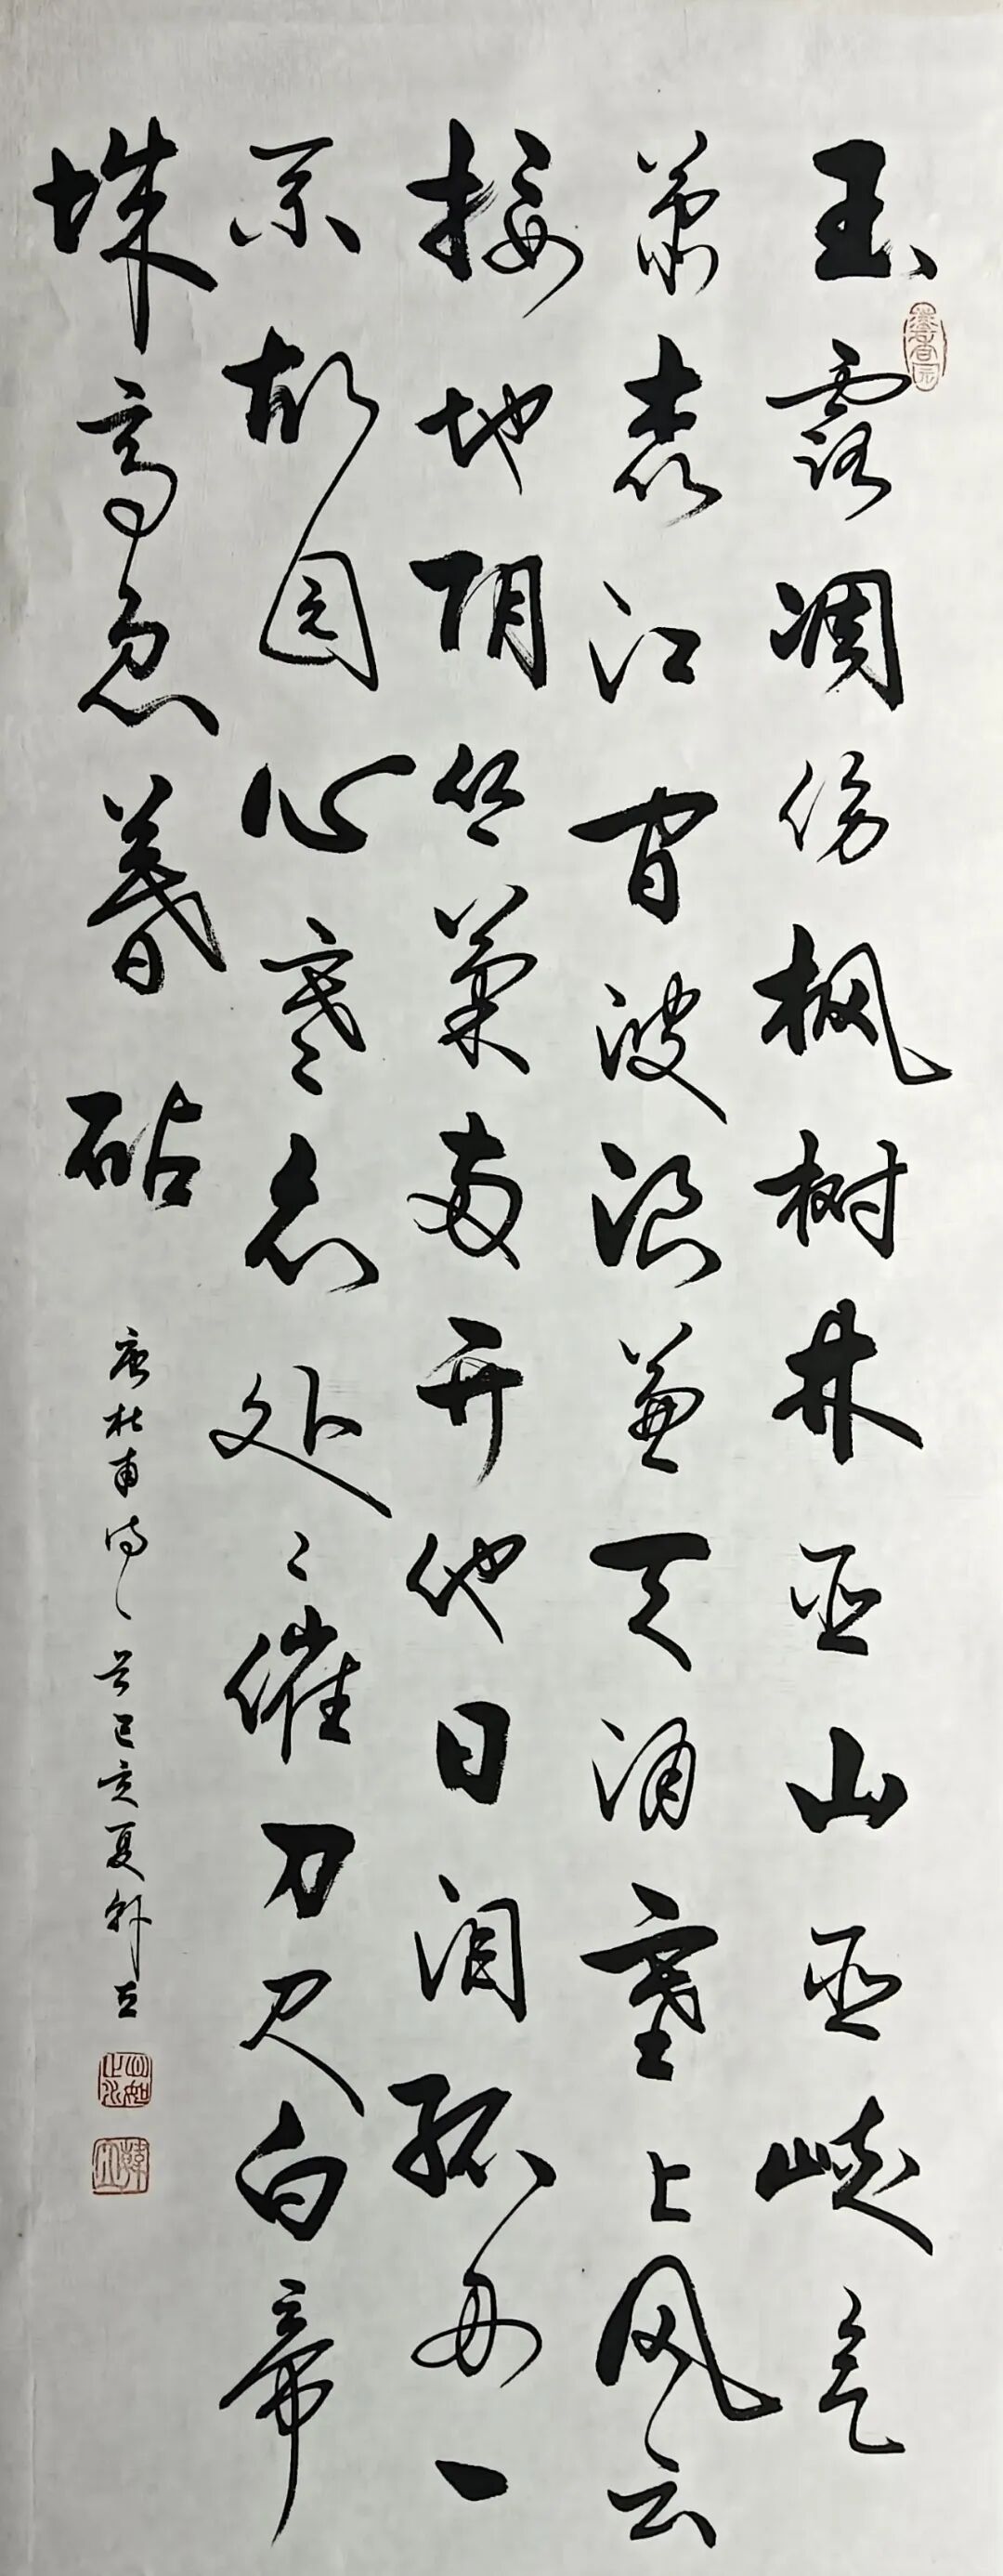 玉露凋伤枫树林巫山巫峡气
萧森江间波浪兼天涌塞上风云
接地阴丛菊两开他日泪孤舟一
系故园心寒衣处处催刀尺白帝
城高急暮砧
唐杜甫诗一首己亥夏
墨香园